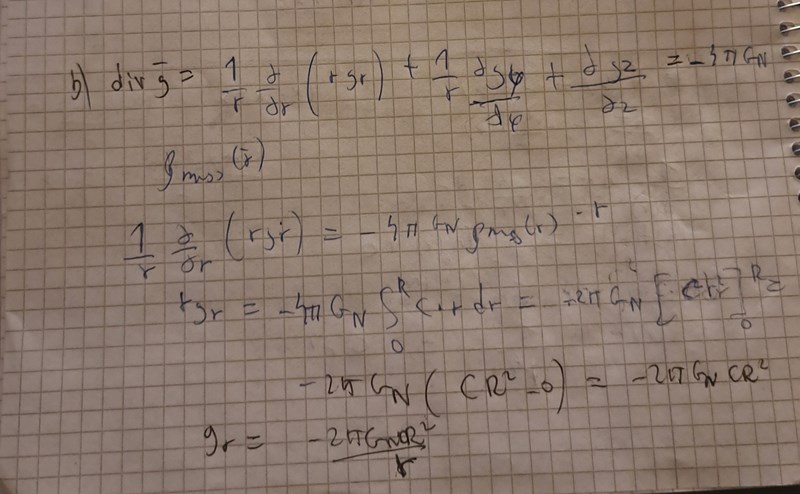 b) div g̅ = 1/r ∂/∂r (r gr) + 1/r ∂gφ/∂φ + ∂gz/∂z = -4πGN
ρmass(r̅)
1/r ∂/∂r (r gr) = -4πGN ρmass(r) · r
r gr = -4πGN ∫₀ᴿ C·r dr = -2πGN [Cr²]₀ᴿ =
-2πGN (CR² - 0) = -2πGN CR²
gr = -2πGNCR²/r